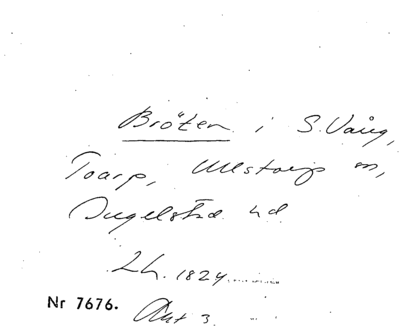 Bröten i S. Vång,
Toarp, Ullstorp m,
Ingelstad hd
Lh. 1824
Nr 7676.
Akt 3